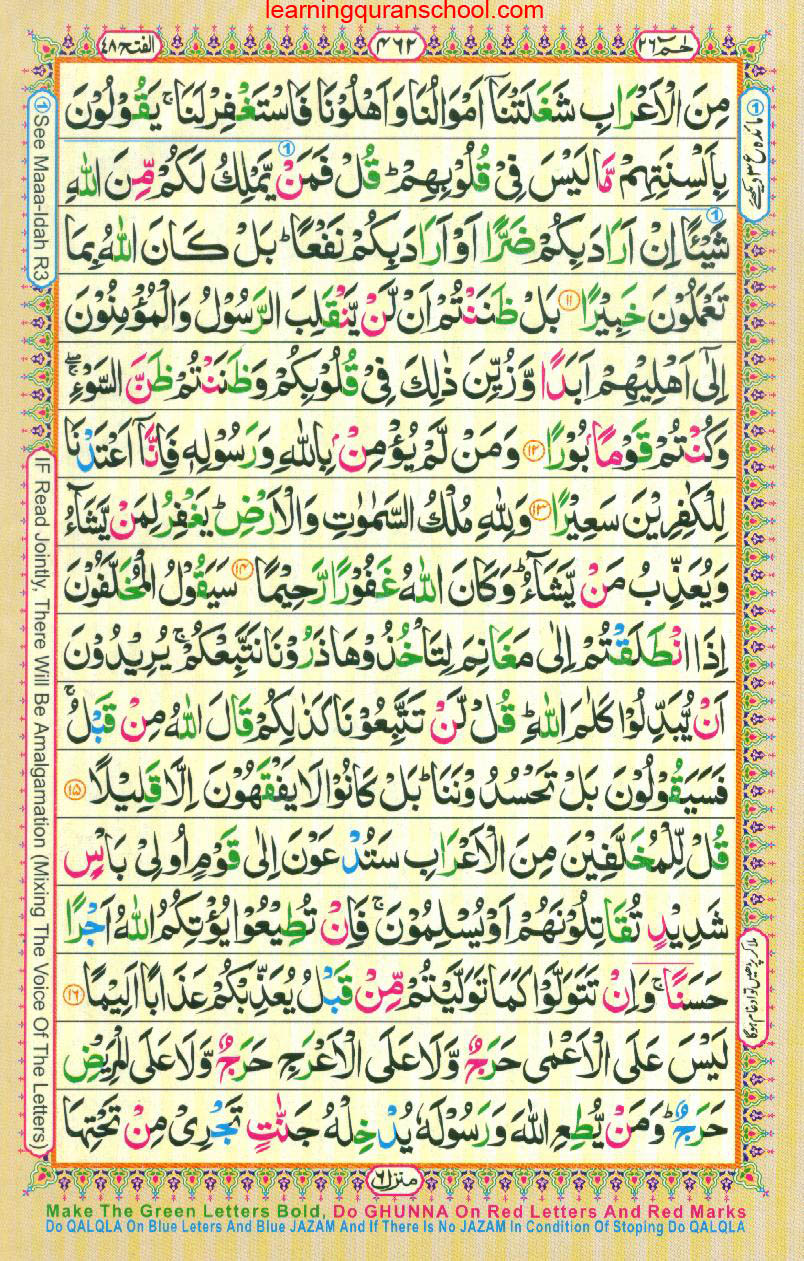 learningquranschool.com
الفتح ٤٨
٤٦٢
حٰمٓ ٢٦
مِنَ الْاَعْرَابِ شَغَلَتْنَاۤ اَمْوَالُنَا وَاَهْلُوْنَا فَاسْتَغْفِرْ لَنَا ۚ يَقُوْلُوْنَ
بِاَلْسِنَتِهِمْ مَّا لَيْسَ فِىْ قُلُوْبِهِمْ ؕ قُلْ فَمَنْ يَّمْلِكُ لَكُمْ مِّنَ اللّٰهِ
شَيْـًٔا اِنْ اَرَادَ بِكُمْ ضَرًّا اَوْ اَرَادَ بِكُمْ نَفْعًا ؕ بَلْ كَانَ اللّٰهُ بِمَا
تَعْمَلُوْنَ خَبِيْرًا ١١ بَلْ ظَنَنْتُمْ اَنْ لَّنْ يَّنْقَلِبَ الرَّسُوْلُ وَالْمُؤْمِنُوْنَ
اِلٰٓى اَهْلِيْهِمْ اَبَدًا وَّزُيِّنَ ذٰلِكَ فِىْ قُلُوْبِكُمْ وَظَنَنْتُمْ ظَنَّ السَّوْءِ ۖۚ
وَكُنْتُمْ قَوْمًۢا بُوْرًا ١٢ وَمَنْ لَّمْ يُؤْمِنْۢ بِاللّٰهِ وَرَسُوْلِهٖ فَاِنَّاۤ اَعْتَدْنَا
لِلْكٰفِرِيْنَ سَعِيْرًا ١٣ وَلِلّٰهِ مُلْكُ السَّمٰوٰتِ وَالْاَرْضِ ؕ يَغْفِرُ لِمَنْ يَّشَآءُ
وَيُعَذِّبُ مَنْ يَّشَآءُ ؕ وَكَانَ اللّٰهُ غَفُوْرًا رَّحِيْمًا ١٤ سَيَقُوْلُ الْمُخَلَّفُوْنَ
اِذَا انْطَلَقْتُمْ اِلٰى مَغَانِمَ لِتَاْخُذُوْهَا ذَرُوْنَا نَتَّبِعْكُمْ ۚ يُرِيْدُوْنَ
اَنْ يُّبَدِّلُوْا كَلٰمَ اللّٰهِ ؕ قُلْ لَّنْ تَتَّبِعُوْنَا كَذٰلِكُمْ قَالَ اللّٰهُ مِنْ قَبْلُ ۚ
فَسَيَقُوْلُوْنَ بَلْ تَحْسُدُوْنَنَا ؕ بَلْ كَانُوْا لَا يَفْقَهُوْنَ اِلَّا قَلِيْلًا ١٥
قُلْ لِّلْمُخَلَّفِيْنَ مِنَ الْاَعْرَابِ سَتُدْعَوْنَ اِلٰى قَوْمٍ اُولِىْ بَاْسٍ
شَدِيْدٍ تُقَاتِلُوْنَهُمْ اَوْ يُسْلِمُوْنَ ۚ فَاِنْ تُطِيْعُوْا يُؤْتِكُمُ اللّٰهُ اَجْرًا
حَسَنًا ۚ وَاِنْ تَتَوَلَّوْا كَمَا تَوَلَّيْتُمْ مِّنْ قَبْلُ يُعَذِّبْكُمْ عَذَابًا اَلِيْمًا ١٦
لَيْسَ عَلَى الْاَعْمٰى حَرَجٌ وَّلَا عَلَى الْاَعْرَجِ حَرَجٌ وَّلَا عَلَى الْمَرِيْضِ
حَرَجٌ ؕ وَمَنْ يُّطِعِ اللّٰهَ وَرَسُوْلَهٗ يُدْخِلْهُ جَنّٰتٍ تَجْرِىْ مِنْ تَحْتِهَا
منزل ٦
① See Maaa-Idah R3
IF Read Jointly, There Will Be Amalgamation (Mixing The Voice Of The Letters)
Make The Green Letters Bold, Do GHUNNA On Red Letters And Red Marks
Do QALQLA On Blue Leters And Blue JAZAM And If There Is No JAZAM In Condition Of Stoping Do QALQLA